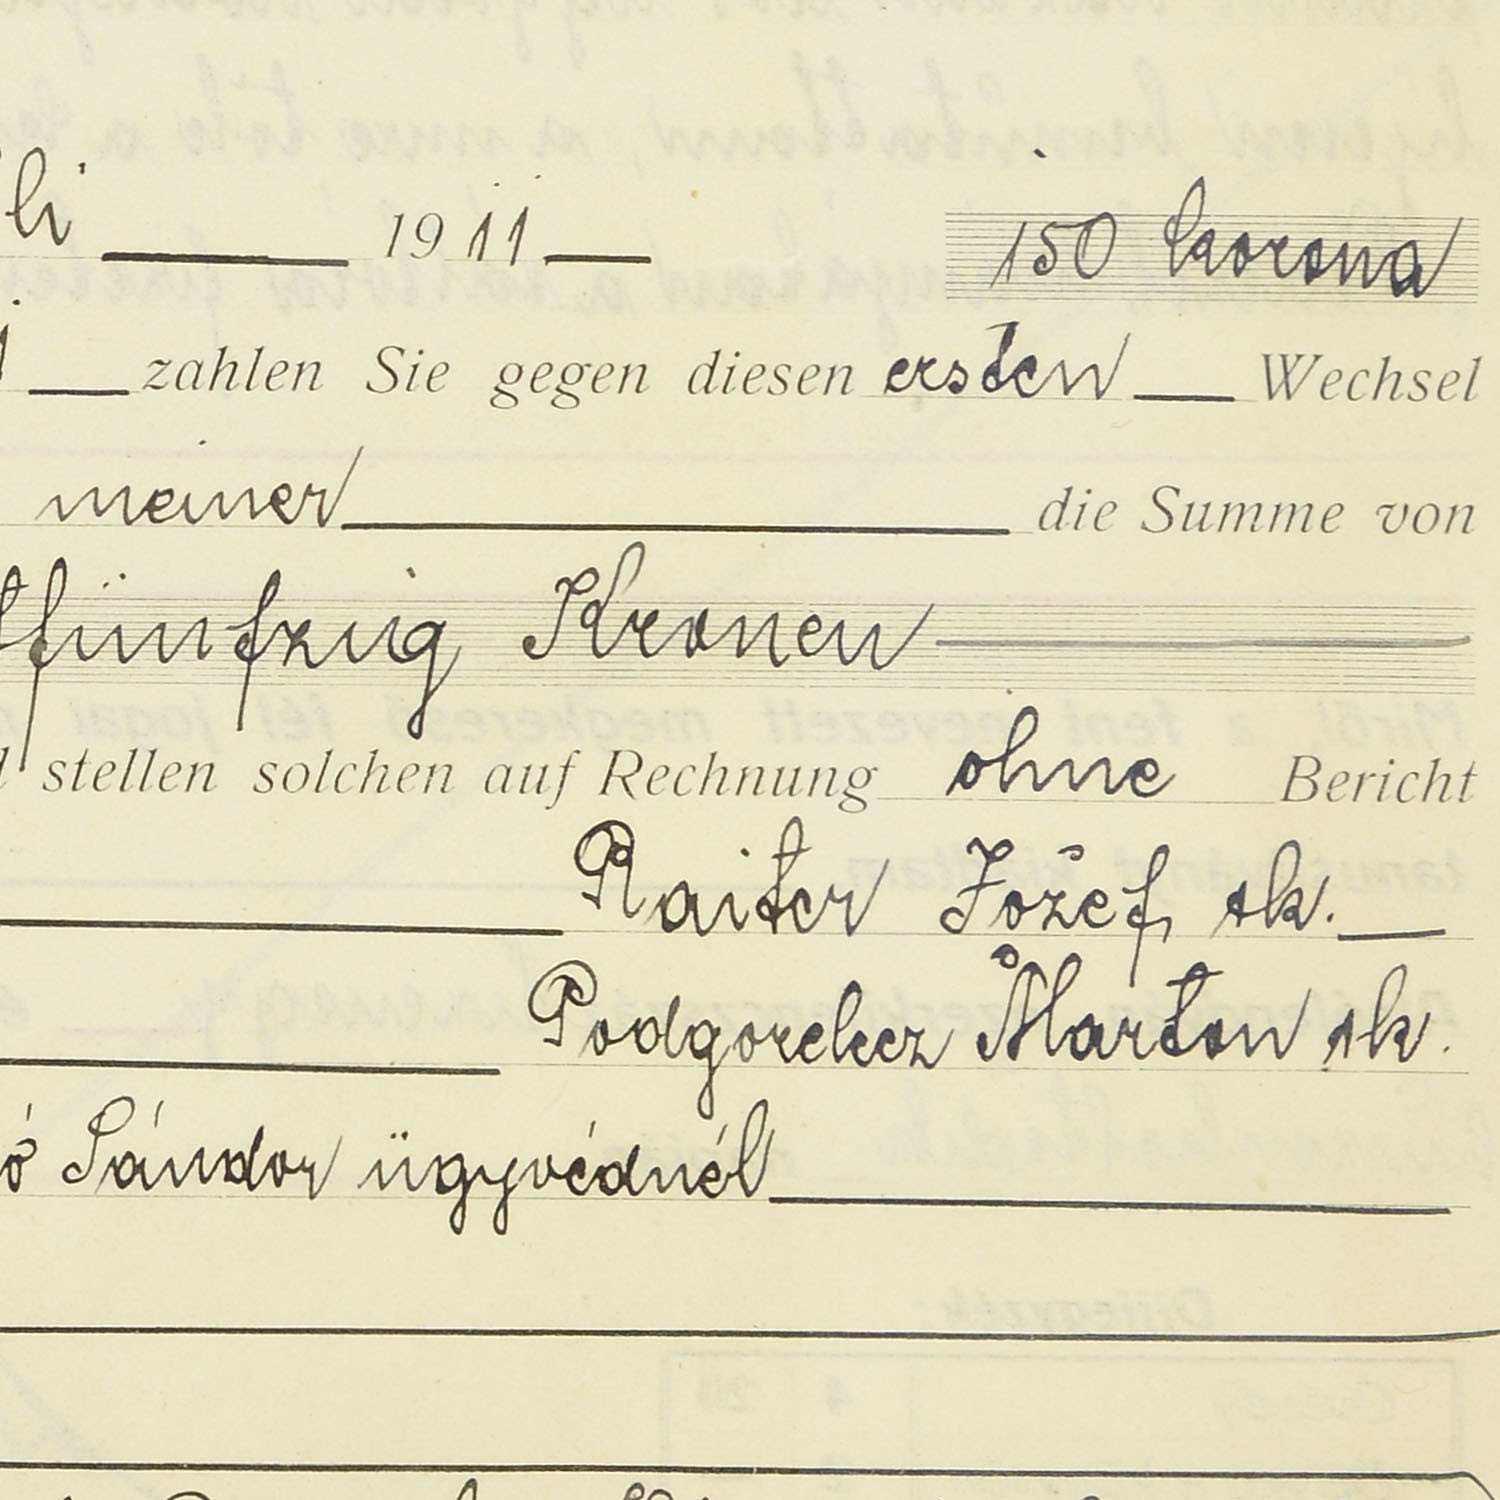 li 1911 150 korona
zahlen Sie gegen diesen ersten Wechsel
meiner die Summe von
fünfzig Kronen
stellen solchen auf Rechnung ohne Bericht
Raiter Jožef sk.
Podgorelecz Márton sk.
Sándor ügyvédnél